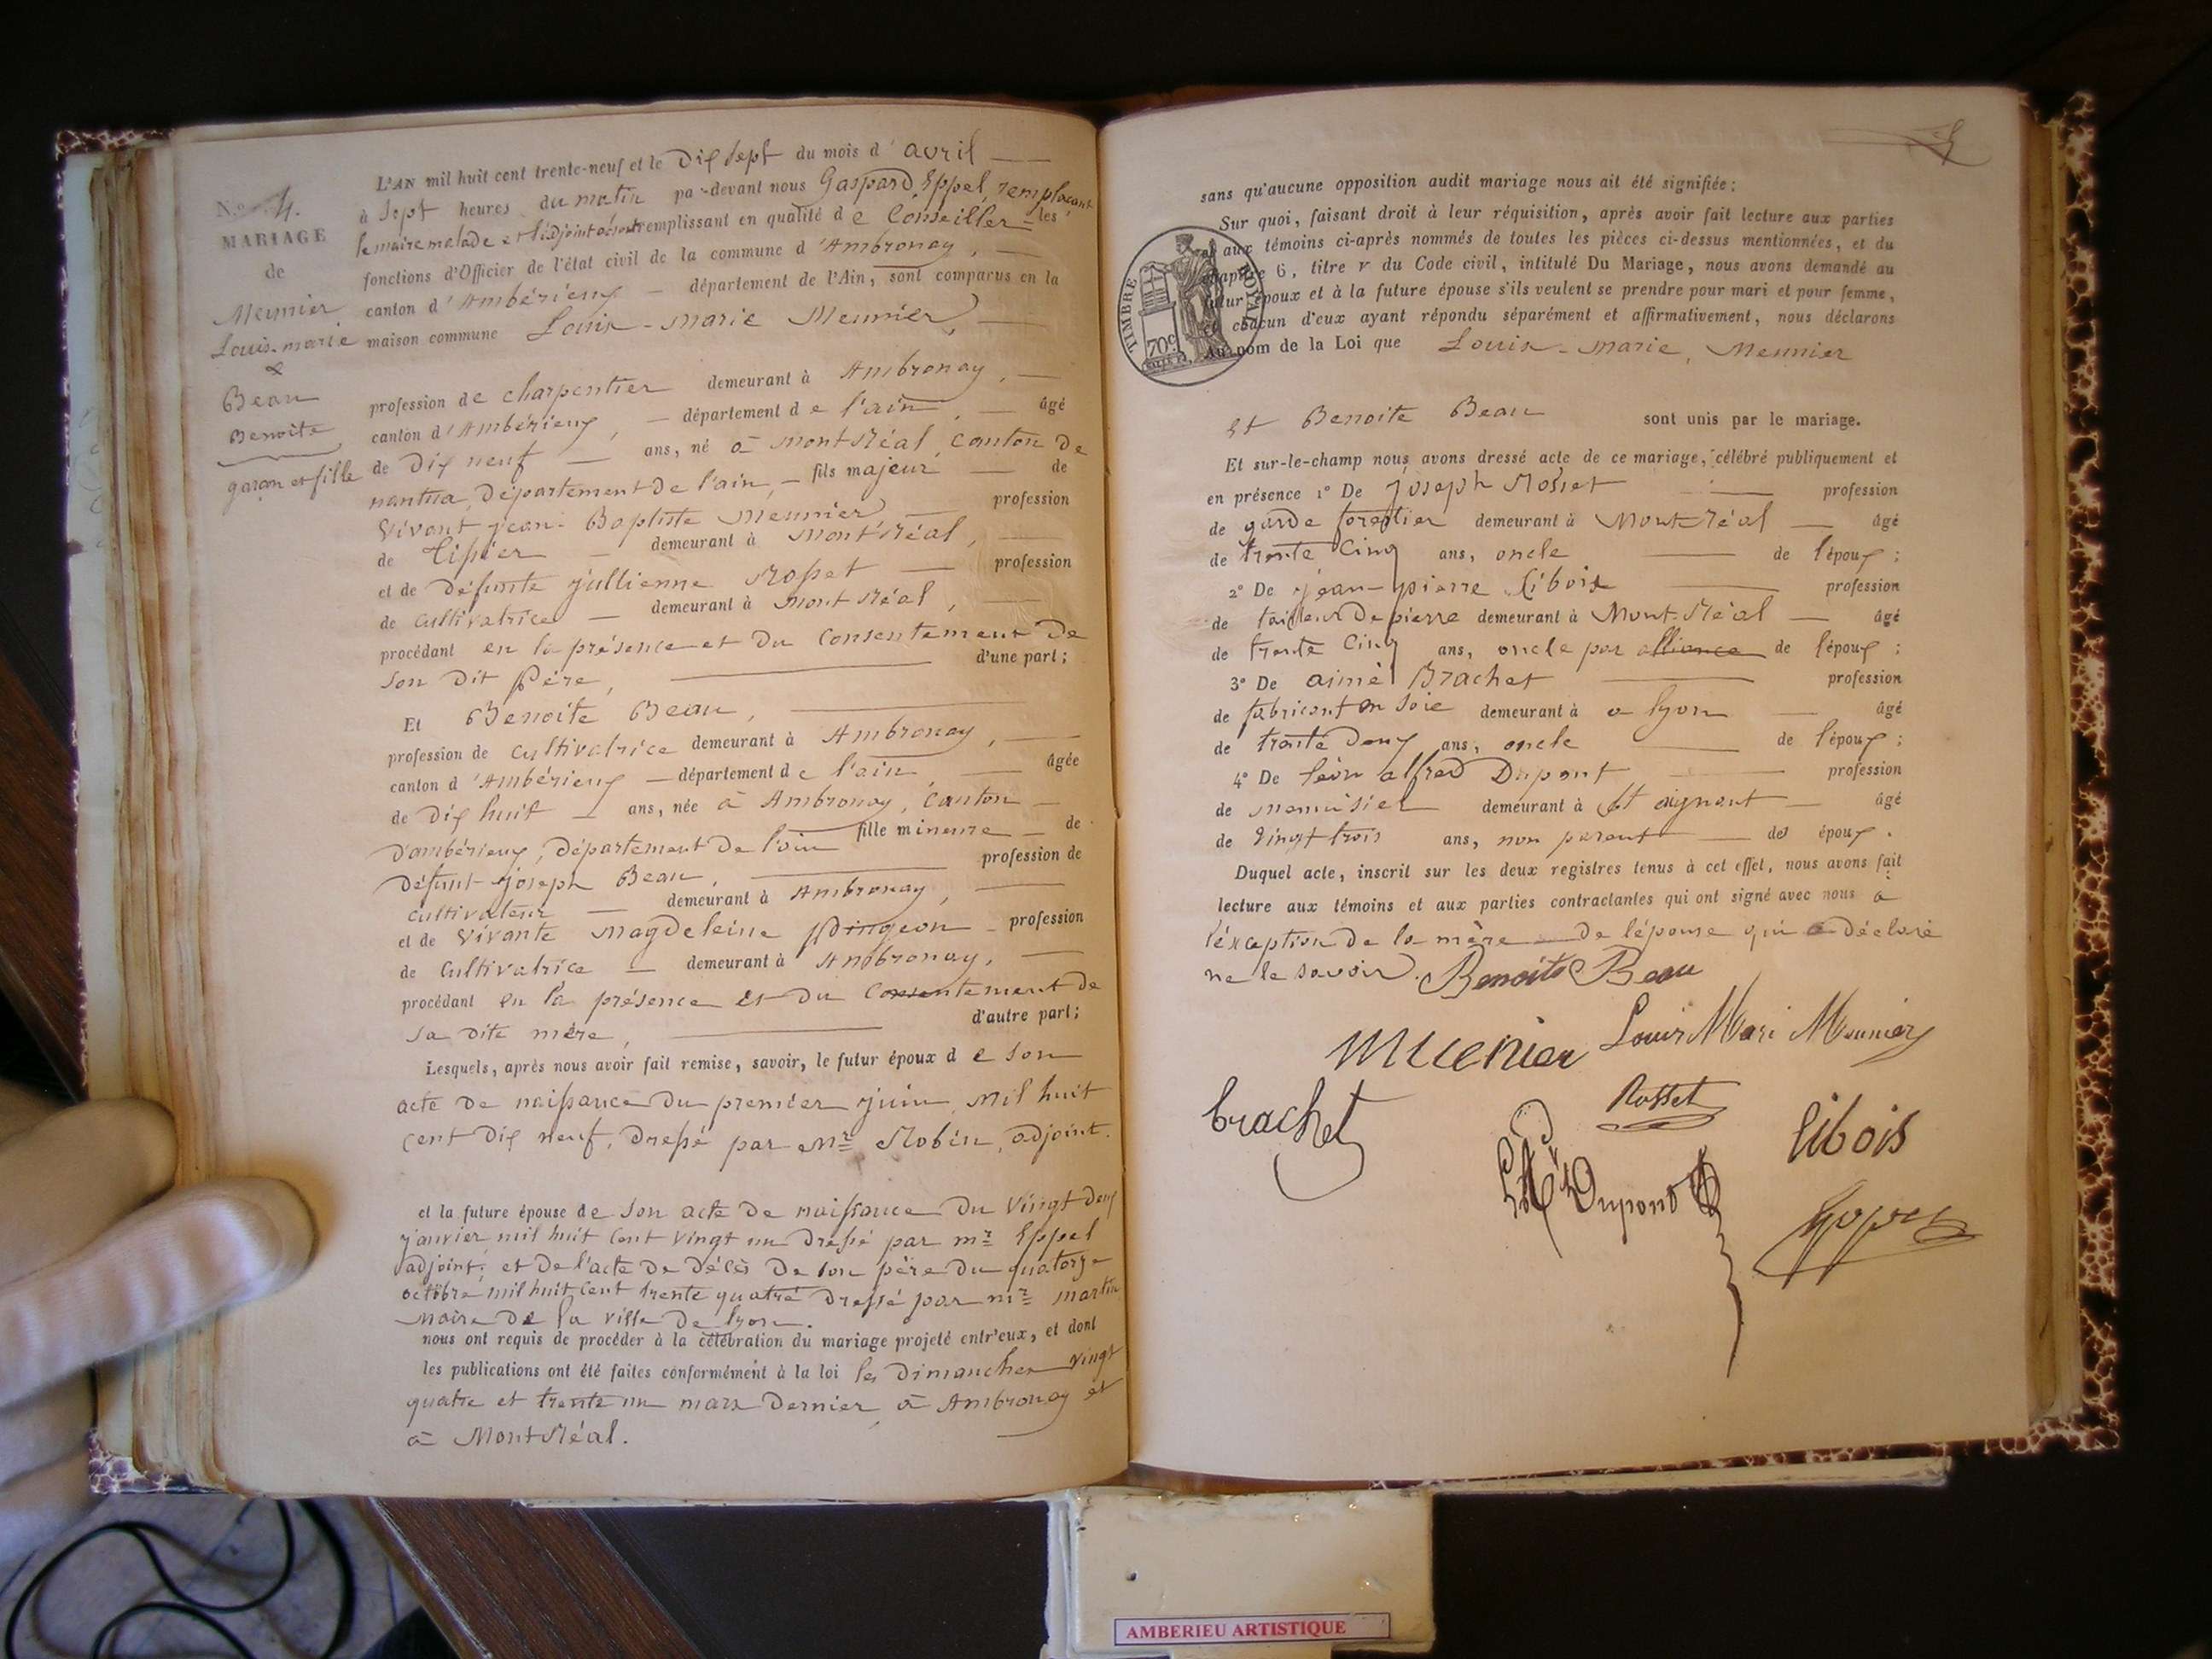 N.o 4.
MARIAGE
de
Meunier
Louis-marie
&
Beau
Benoite
garçon et fille
L'AN mil huit cent trente-neuf et le Dix sept du mois d'avril
à sept heures du matin par-devant nous Gaspard Eppel, remplaçant
le maire malade et l'adjoint absent remplissant en qualité de Conseiller les
fonctions d'Officier de l'état civil de la commune d'Ambronay,
canton d'Ambérieux département de l'Ain, sont comparus en la
maison commune Louis-Marie Meunier,
profession de charpentier demeurant à Ambronay,
canton d'Ambérieux, département de l'ain, âgé
de Dix neuf ans, né à Montréal, canton de
nantua, Département de l'ain, fils majeur de
Vivant jean-Baptiste Meunier profession
de demeurant à Montréal,
et de Défunte jullienne Rosset profession
de Cultivatrice demeurant à Mont Réal,
procédant en la présence et du Consentement de
son dit Père, d'une part;
Et Benoite Beau,
profession de Cultivatrice demeurant à Ambronay,
canton d'Ambérieux département de l'ain, âgée
de Dix huit ans, née à Ambronay, Canton
D'ambérieux, Département de l'ain fille mineure de
Défunt joseph Beau, profession de
Cultivateur demeurant à Ambronay,
et de Vivante Magdeleine profession
de Cultivatrice demeurant à Ambronay,
procédant en la présence et du Consentement de
sa dite mère, d'autre part;
Lesquels, après nous avoir fait remise, savoir, le futur époux de son
acte de naissance du premier juin Mil huit
cent dix neuf, dressé par Mr Robin, adjoint.
et la future épouse de son acte de naissance du Vingt deux
janvier mil huit cent vingt un dressé par mr Eppel
adjoint; et de l'acte de décès de son père du quatorze
octobre mil huit cent trente quatre dressé par mr martin
Maire de la ville de lyon.
nous ont requis de procéder à la célébration du mariage projeté entr'eux, et dont
les publications ont été faites conformément à la loi les Dimanches vingt
quatre et trente un mars Dernier, à Ambronay et
à Mont Réal.
sans qu'aucune opposition audit mariage nous ait été signifiée;
Sur quoi, faisant droit à leur réquisition, après avoir fait lecture aux parties
et aux témoins ci-après nommés de toutes les pièces ci-dessus mentionnées, et du
chapitre 6, titre V du Code civil, intitulé Du Mariage, nous avons demandé au
futur époux et à la future épouse s'ils veulent se prendre pour mari et pour femme,
et chacun d'eux ayant répondu séparément et affirmativement, nous déclarons
Au nom de la Loi que Louis-marie, Meunier
TIMBRE ROYAL
70c
Et Benoite Beau sont unis par le mariage.
Et sur-le-champ nous avons dressé acte de ce mariage, célébré publiquement et
en présence 1° De Joseph Rosset profession
de garde forestier demeurant à Mont Réal âgé
de trente Cinq ans, oncle de l'époux;
2° De jean-pierre Libois profession
de tailleur de pierre demeurant à Mont-Réal âgé
de trente Cinq ans, oncle par alliance de l'époux;
3° De aimé Brachet profession
de fabricant en Soie demeurant à a lyon âgé
de trente Deux ans, oncle de l'époux;
4° De léon alfred Dupont profession
de menuisier demeurant à âgé
de Vingt trois ans, non parent des époux.
Duquel acte, inscrit sur les deux registres tenus à cet effet, nous avons fait
lecture aux témoins et aux parties contractantes qui ont signé avec nous à
l'exception de la mère de l'épouse qui a déclaré
ne le savoir. Benoite Beau
Meunier Louis Mari Meunier
brachet Rosset libois
Dupont
AMBERIEU ARTISTIQUE